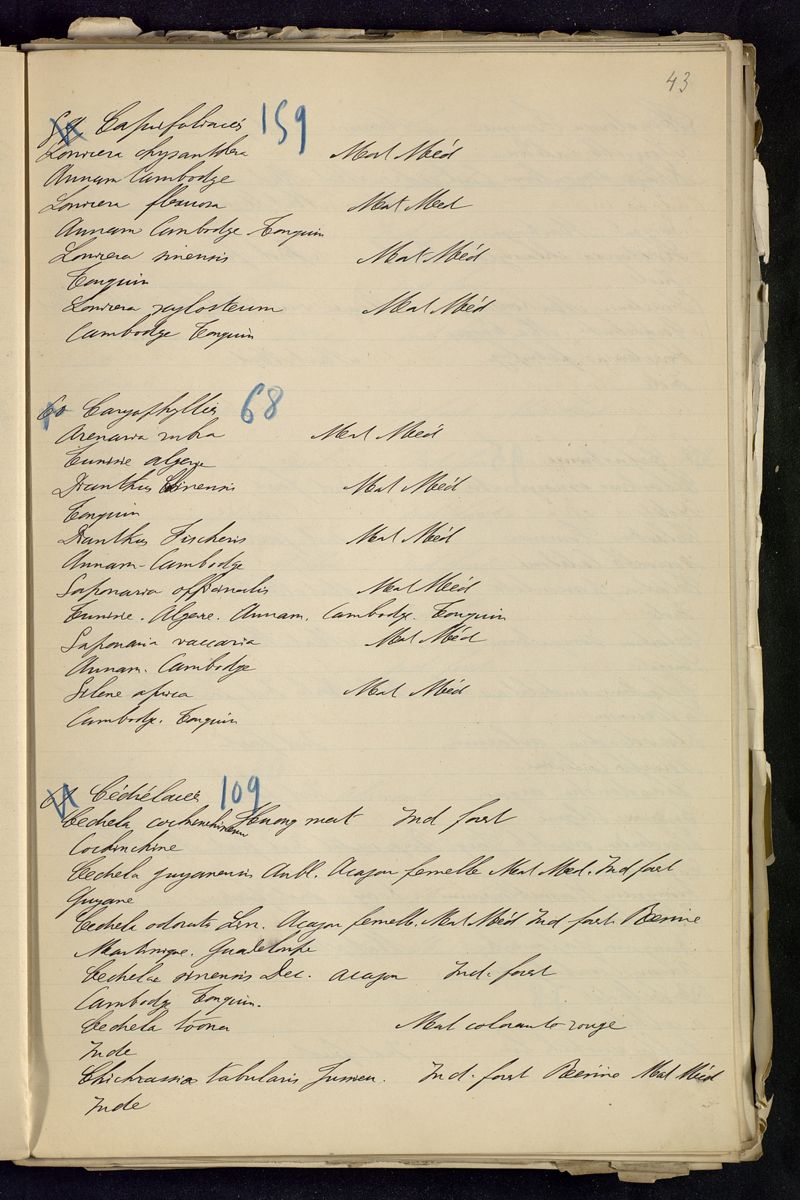 43
Caprifoliacés 159
Lonicera chysanthera Mat Méd
Annam Cambodge
Lonicera flexuosa Mat Med
Annam Cambodge Tonquin
Lonicera sinensis Mat Méd
Tonquin
Lonicera xylosteum Mat Méd
Cambodge Tonquin
60 Caryophyllés 68
Arenaria rubra Mat Méd
Tunisie algerie
Dianthus Sinensis Mat Méd
Tonquin
Dianthus Fischeris Mat Méd
Annam-Cambodge
Saponaria officinalis Mat Méd
Tunisie. Algerie. Annam. Cambodge. Tonquin
Saponaria vaccaria Mat Méd
Annam. Cambodge
Silene aprica Mat Méd
Cambodge. Tonquin
Cédrélacés 109
Cedrela cochinchinensis Huong mat Ind forest
Cochinchine
Cedrela guyanensis Aubl. Acajou femelle Mat Med. Ind forest
Guyane
Cedrela odorata Lin. Acajou femelle. Mat Méd Ind forest. Résine
Martinique. Guadeloupe
Cedrela sinensis Dec. acajou Ind. forest
Cambodge Tonquin.
Cedrela toona Mat colorante rouge
Inde
Chickrassia tabularis Jussieu. Ind. forest Résine Mat Méd
Inde